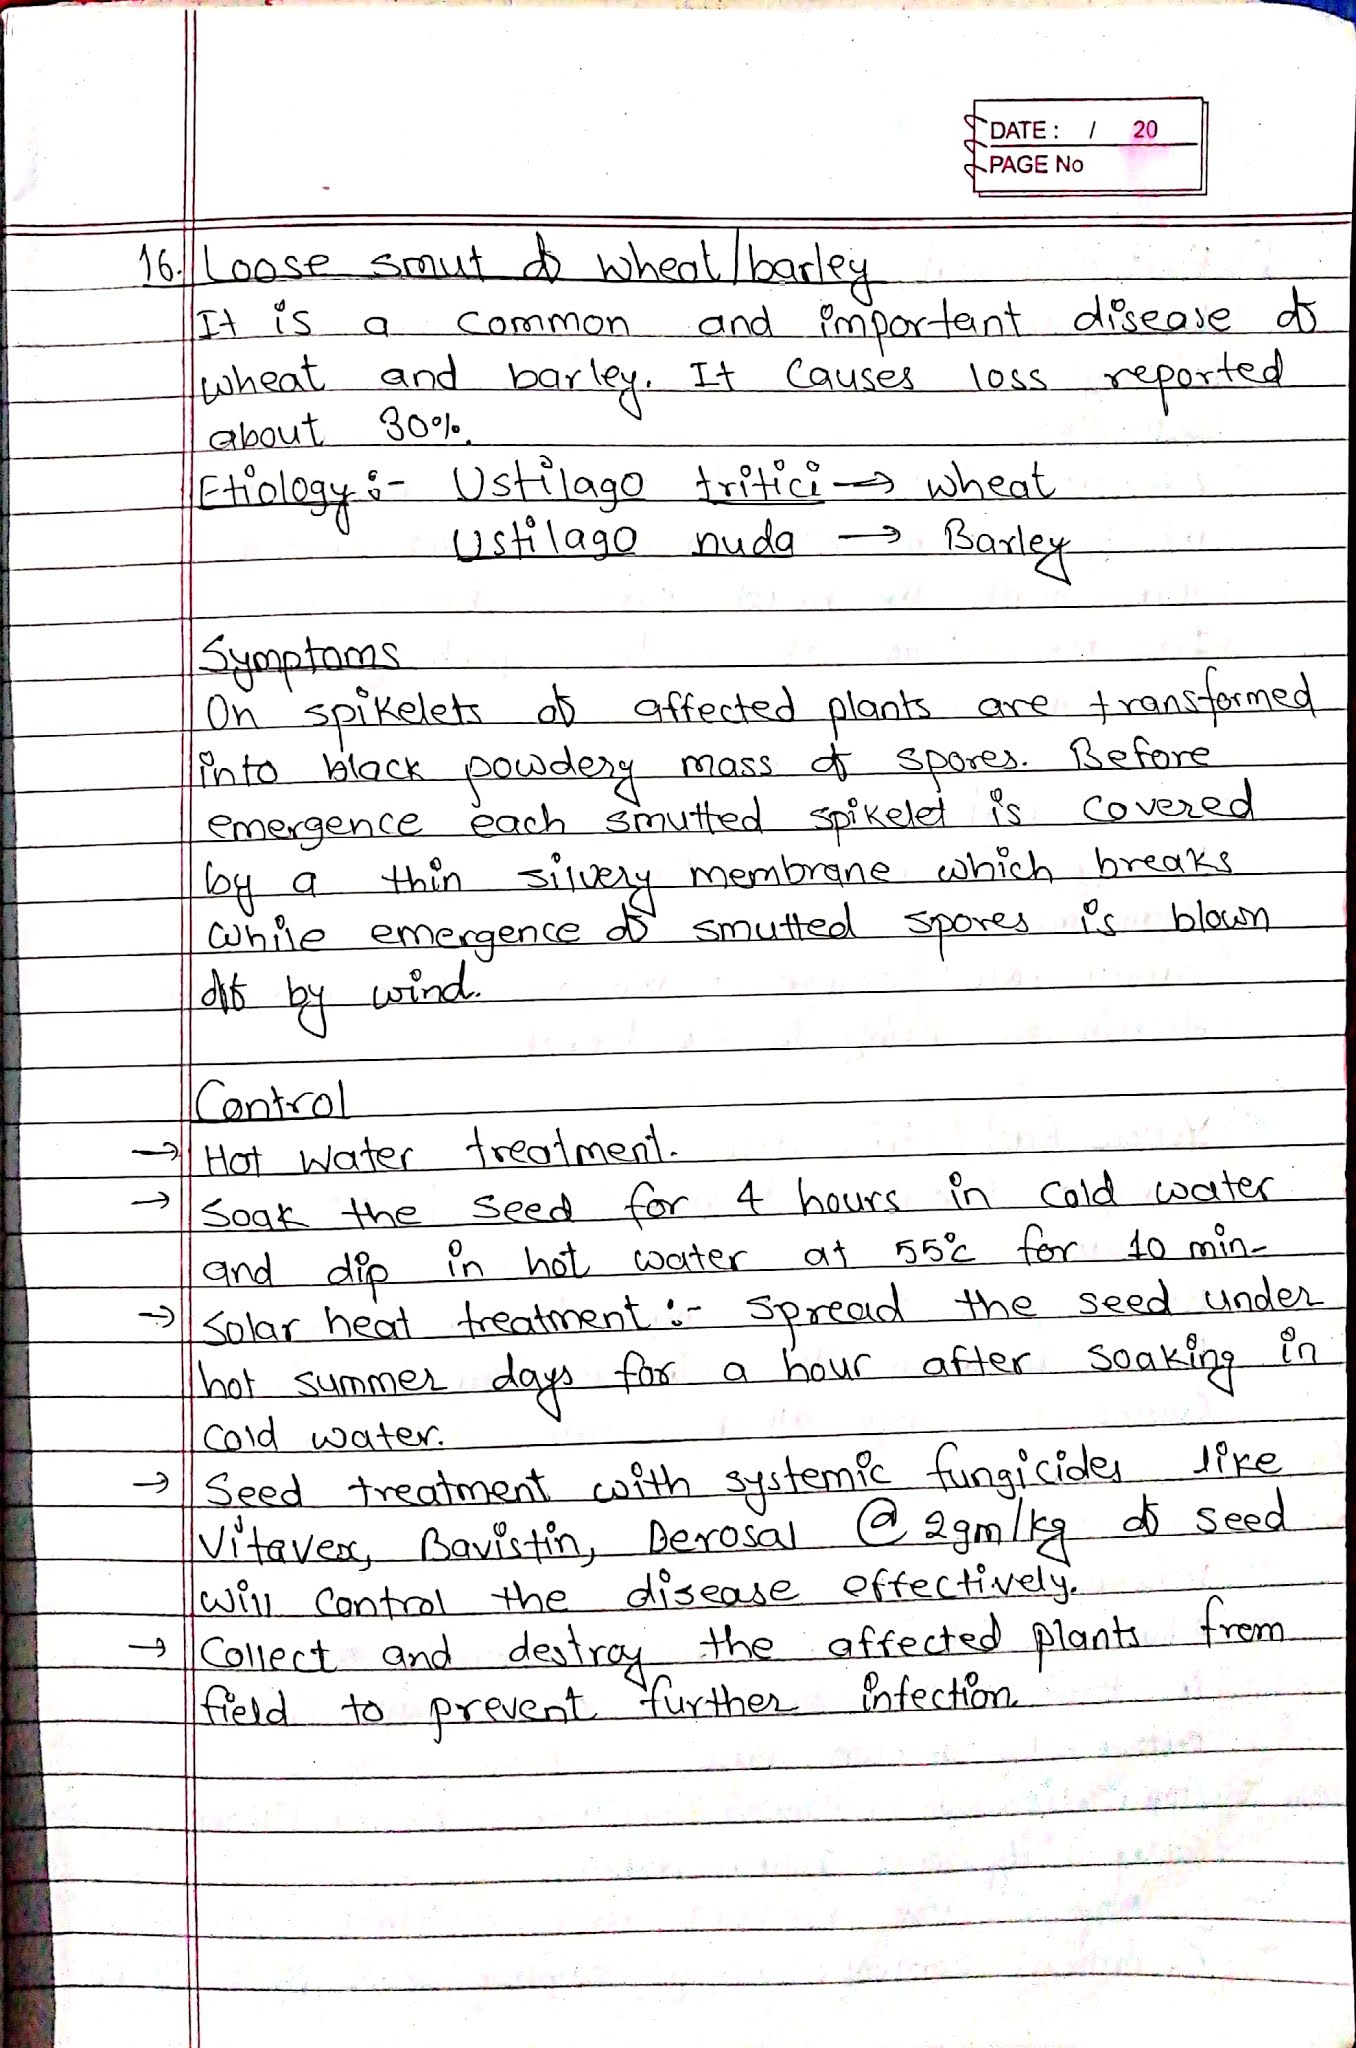 DATE: / 20
PAGE No
16. Loose smut of wheat/barley
It is a common and important disease of
wheat and barley. It causes loss reported
about 30%.
Etiology :- Ustilago tritici → wheat
Ustilago nuda → Barley
Symptoms
On spikelets of affected plants are transformed
into black powdery mass of spores. Before
emergence each smutted spikelet is covered
by a thin silvery membrane which breaks
while emergence of smutted spores is blown
off by wind.
Control
→ Hot water treatment.
→ Soak the seed for 4 hours in cold water
and dip in hot water at 55°c for 10 min-
→ Solar heat treatment :- spread the seed under
hot summer days for a hour after soaking in
cold water.
→ Seed treatment with systemic fungicides like
Vitavex, Bavistin, Derosal @ 2gm/kg of seed
will control the disease effectively.
→ Collect and destroy the affected plants from
field to prevent further infection